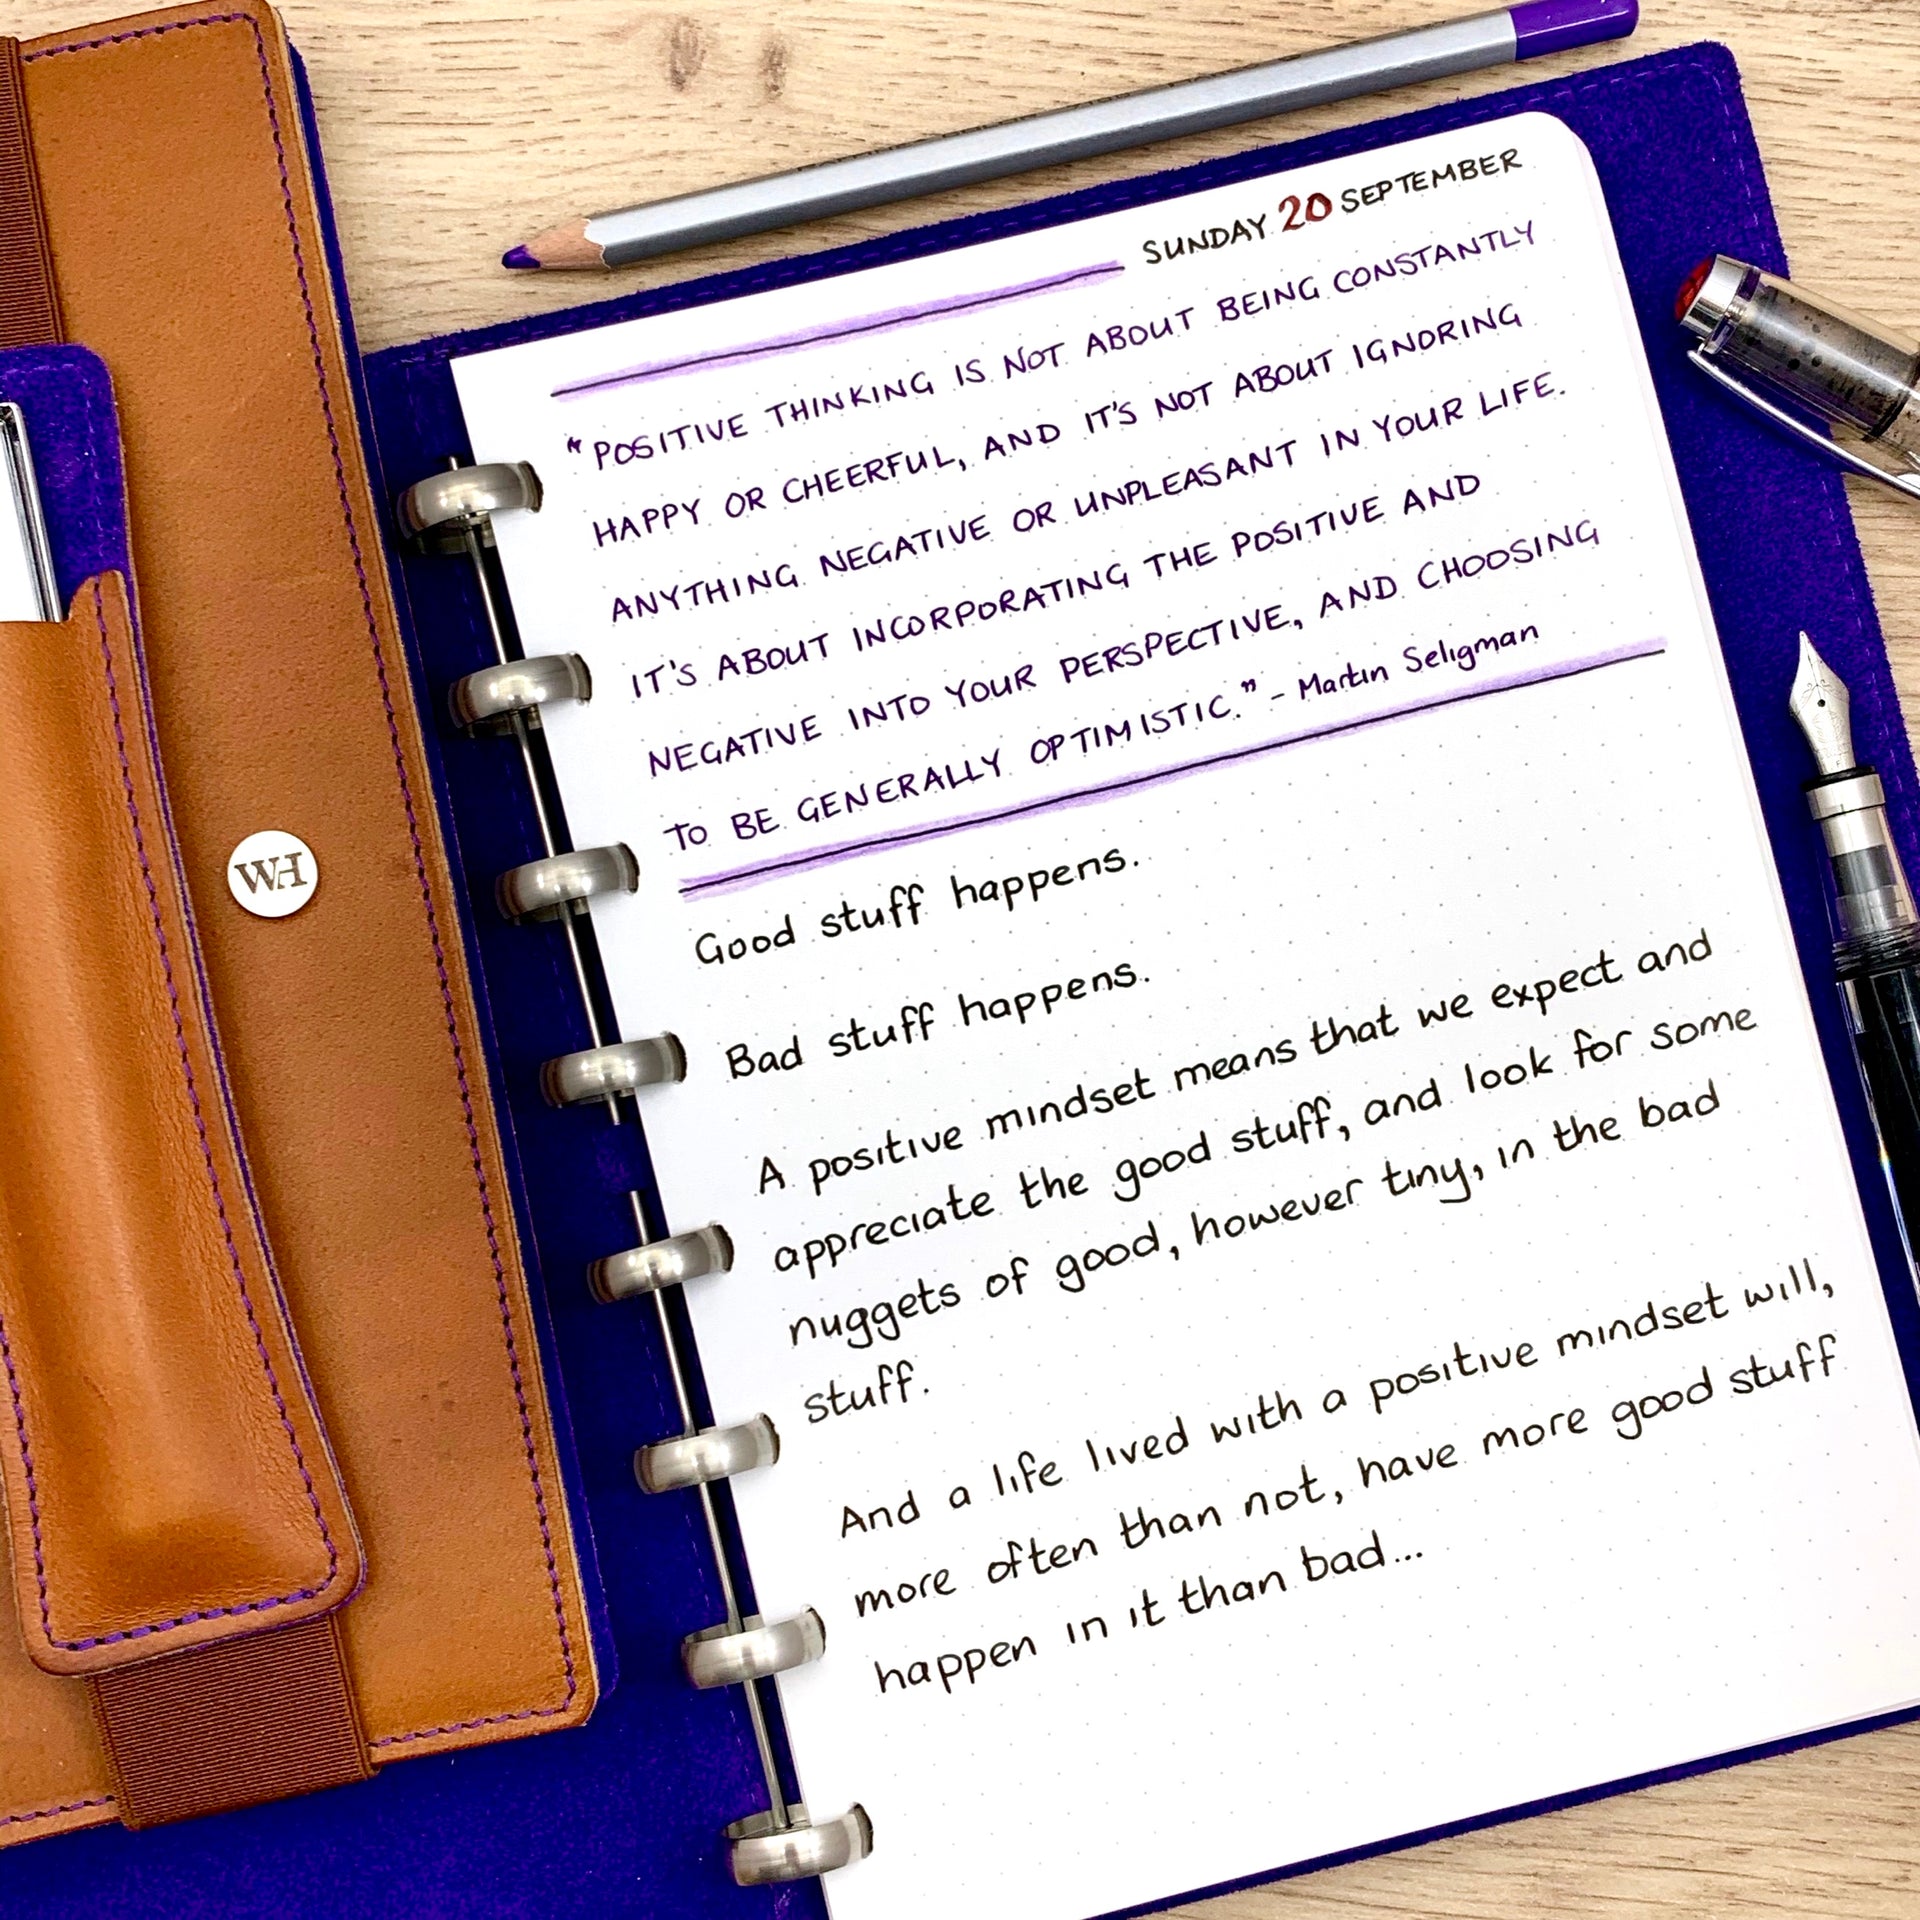 SUNDAY 20 SEPTEMBER
"POSITIVE THINKING IS NOT ABOUT BEING CONSTANTLY
HAPPY OR CHEERFUL, AND IT'S NOT ABOUT IGNORING
ANYTHING NEGATIVE OR UNPLEASANT IN YOUR LIFE.
IT'S ABOUT INCORPORATING THE POSITIVE AND
NEGATIVE INTO YOUR PERSPECTIVE, AND CHOOSING
TO BE GENERALLY OPTIMISTIC." - Martin Seligman
Good stuff happens.
Bad stuff happens.
A positive mindset means that we expect and
appreciate the good stuff, and look for some
nuggets of good, however tiny, in the bad
stuff.
And a life lived with a positive mindset will,
more often than not, have more good stuff
happen in it than bad...
WH